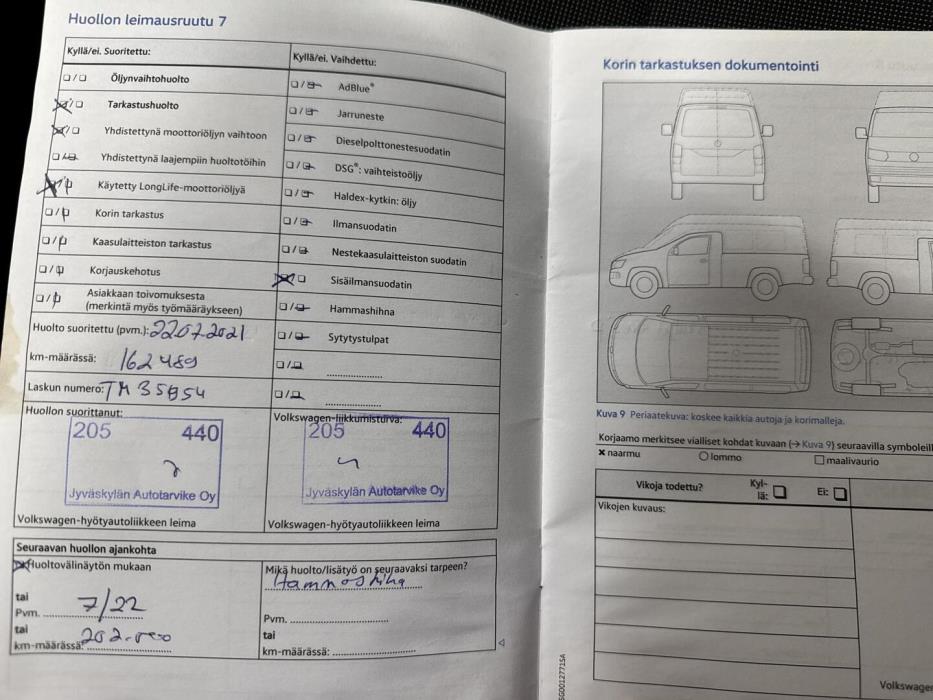 Huollon leimausruutu 7
Kyllä/ei. Suoritettu:
Öljynvaihtohuolto
Tarkastushuolto
Yhdistettynä moottoriöljyn vaihtoon
Yhdistettynä laajempiin huoltotöihin
Käytetty LongLife-moottoriöljyä
Korin tarkastus
Kaasulaitteiston tarkastus
Korjauskehotus
Asiakkaan toivomuksesta
(merkintä myös työmääräykseen)
Kyllä/ei. Vaihdettu:
AdBlue®
Jarruneste
Dieselpolttonestesuodatin
DSG®: vaihteistoöljy
Haldex-kytkin: öljy
Ilmansuodatin
Nestekaasulaitteiston suodatin
Sisäilmansuodatin
Hammashihna
Sytytystulpat
Huolto suoritettu (pvm.): 22072021
km-määrässä: 162489
Laskun numero: TM35854
Huollon suorittanut:
205 440
Jyväskylän Autotarvike Oy
Volkswagen-hyötyautoliikkeen leima
Volkswagen-liikkumisturva:
205 440
Jyväskylän Autotarvike Oy
Volkswagen-hyötyautoliikkeen leima
Seuraavan huollon ajankohta
Huoltovälinäytön mukaan
tai
Pvm. 7/22
tai
km-määrässä:
Mikä huolto/lisätyö on seuraavaksi tarpeen?
Hammashihna
Pvm.
tai
km-määrässä:
Korin tarkastuksen dokumentointi
Kuva 9 Periaatekuva: koskee kaikkia autoja ja korimalleja.
Korjaamo merkitsee vialliset kohdat kuvaan (→ Kuva 9) seuraavilla symboleill
naarmu lommo maalivaurio
Vikoja todettu? Kyl-
lä: Ei:
Vikojen kuvaus:
Volkswagen